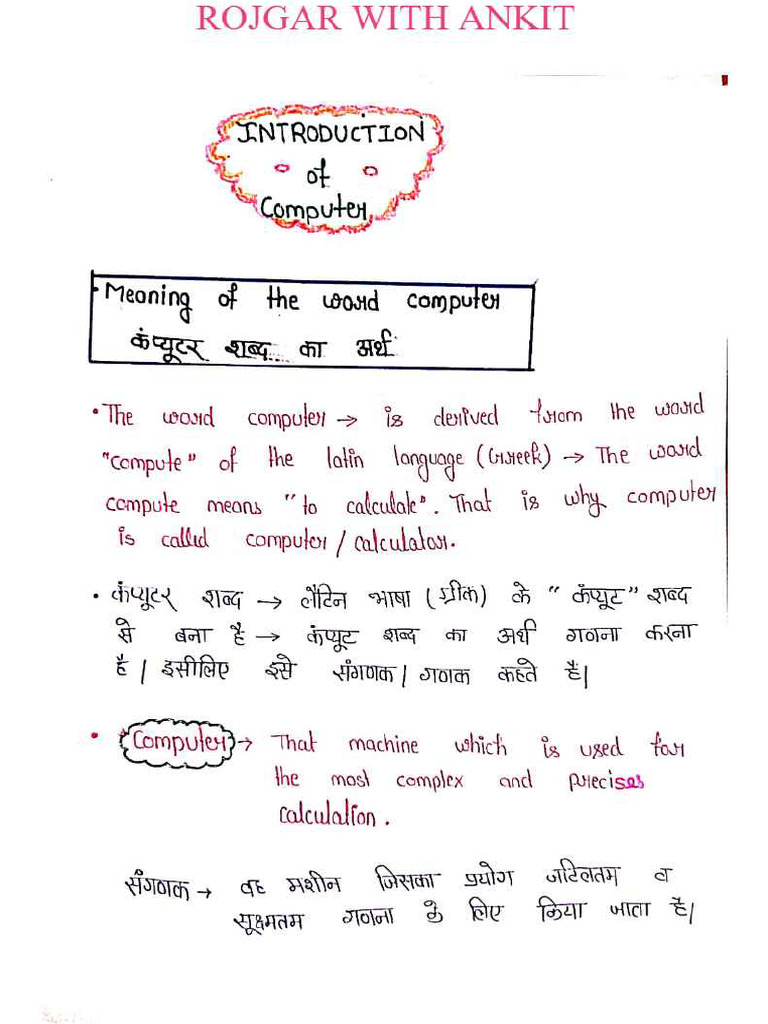 ROJGAR WITH ANKIT
INTRODUCTION
of
Computer
• Meaning of the word computer
कंप्यूटर शब्द का अर्थ
• The word computer → is derived from the word
"compute" of the latin language (Greek) → The word
compute means "to calculate". That is why computer
is called computer / calculator.
• कंप्यूटर शब्द → लैटिन भाषा (ग्रीक) के "कंप्यूट" शब्द
से बना है → कंप्यूट शब्द का अर्थ गणना करना
है। इसीलिए इसे संगणक / गणक कहते है।
• Computer → That machine which is used for
the most complex and precises
calculation.
संगणक → वह मशीन जिसका प्रयोग जटिलतम व
सूक्ष्मतम गणना के लिए किया जाता है।